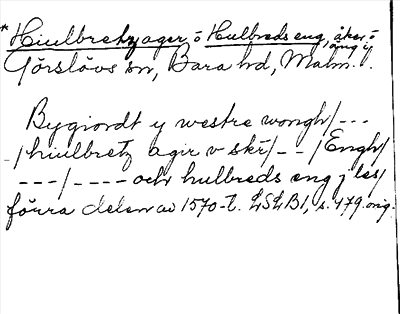 * Hiulbretz ager o Hulbreds eng, åker o
äng i
Görslövs sn, Bara hd, Malm. l.
Bygiordt y westre wongh/---
-/hiulbretz agir v skr/--/Engh/
---/---- och hulbreds eng j les/
förra delen av 1570-t. LSLB1, s. 479. orig.